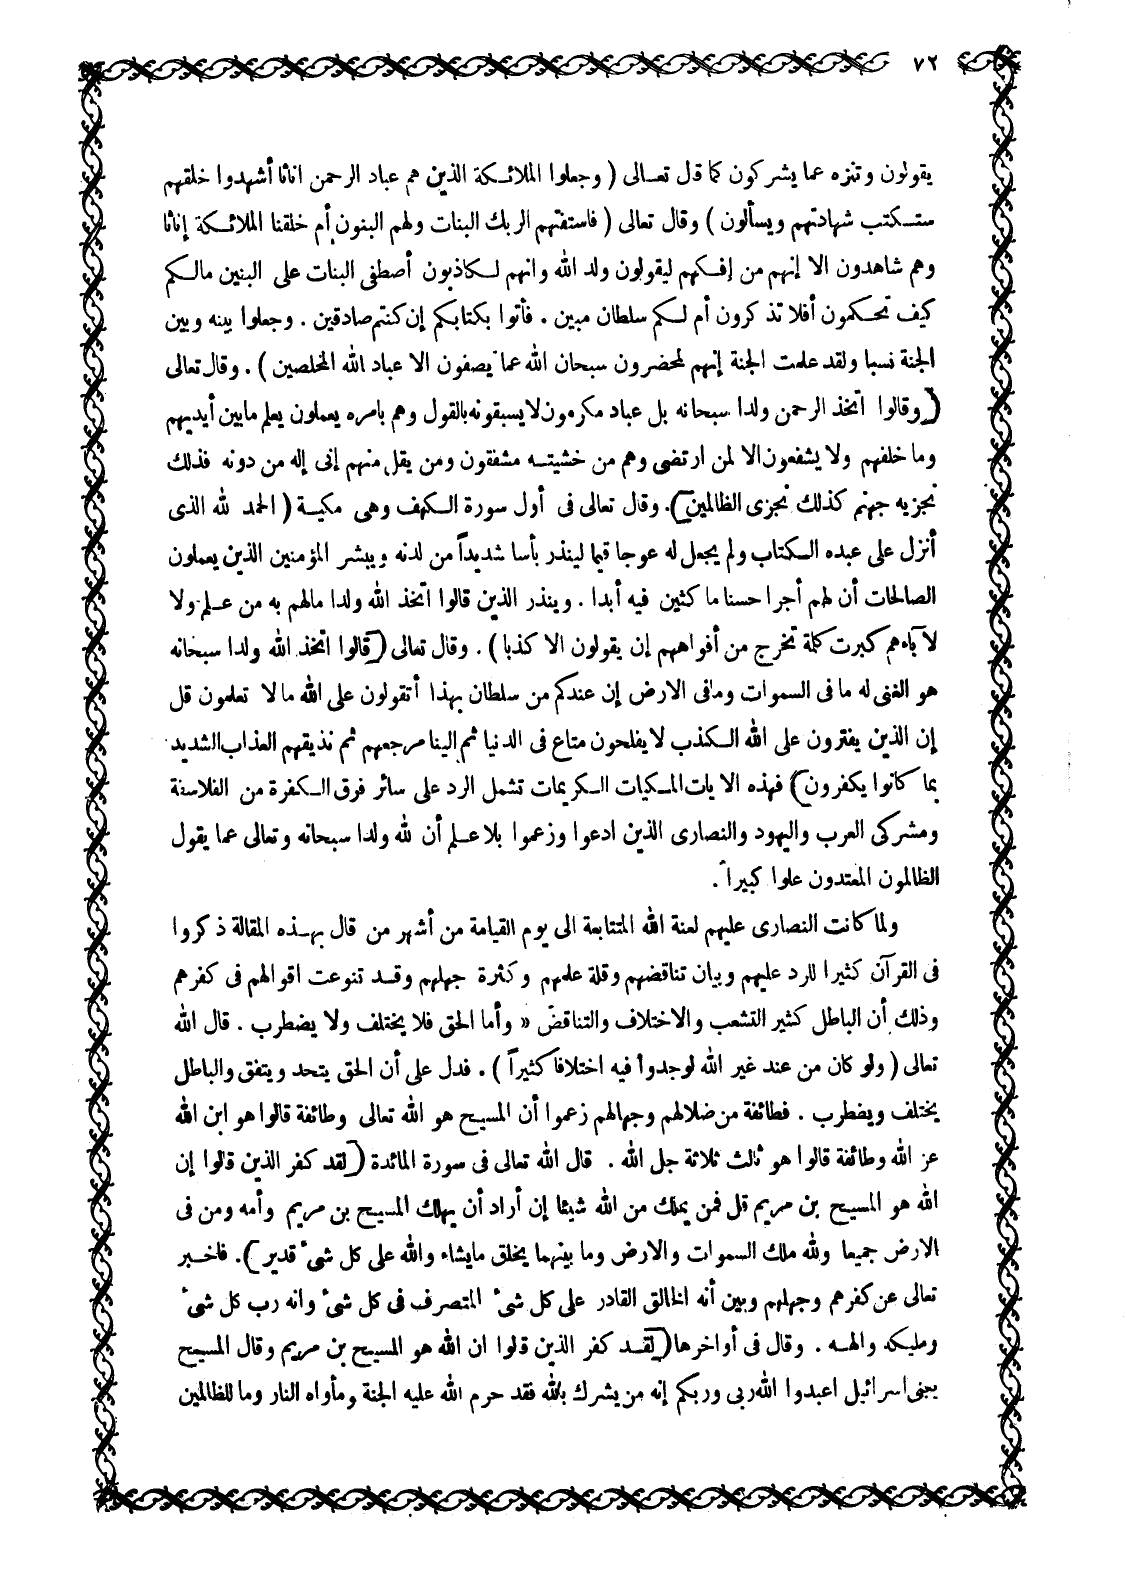 ٧٢
يقولون وتنزه عما يشركون كما قال تعـالى ( وجعلوا الملائـكة الذين هم عباد الرحمن اناثا أشهدوا خلقهم
ستـكتب شهادتهم ويسألون ) وقال تعالى ( فاستفتهم الربك البنات ولهم البنون أم خلقنا الملائـكة إناثا
وهم شاهدون الا إنهم من إفـكهم ليقولون ولد الله وانهم لـكاذبون أصطفى البنات على البنين مالـكم
كيف تحـكمون أفلا تذكرون أم لـكم سلطان مبين . فأتوا بكتابكم إن كنتم صادقين . وجعلوا بينه وبين
الجنة نسبا ولقد علمت الجنة إنهم لمحضرون سبحان الله عما يصفون الا عباد الله المخلصين ) . وقال تعالى
( وقالوا اتخذ الرحمن ولدا سبحانه بل عباد مكرمون لا يسبقونه بالقول وهم بامره يعملون يعلم مابين أيديهم
وما خلفهم ولا يشفعون الا لمن ارتضى وهم من خشيتـه مشفقون ومن يقل منهم إنى إله من دونه فذلك
نجزيه جهنم كذلك نجزى الظالمين ) . وقال تعالى فى أول سورة الـكهف وهى مكيـة ( الحمد لله الذى
أنزل على عبده الـكتاب ولم يجعل له عوجا قيما لينذر بأسا شديداً من لدنه ويبشر المؤمنين الذين يعملون
الصالحات أن لهم أجرا حسنا ماكثين فيه أبدا . وينذر الذين قالوا اتخذ الله ولدا مالهم به من عـلم ولا
لآباءهم كبرت كلمة تخرج من أفواههم إن يقولون الا كذبا ) . وقال تعالى ( قالوا اتخذ الله ولدا سبحانه
هو الغنى له ما فى السموات ومافى الارض إن عندكم من سلطان بهذا أتقولون على الله ما لا تعلمون قل
إن الذين يفترون على الله الـكذب لا يفلحون متاع فى الدنيا ثم الينا مرجعهم ثم نذيقهم العذاب الشديد
بما كانوا يكفرون ) فهذه الايات المـكيات الـكريمات تشمل الرد على سائر فرق الـكفرة من الفلاسفة
ومشركى العرب واليهود والنصارى الذين ادعوا وزعموا بلا علـم أن لله ولدا سبحانه وتعالى عما يقول
الظالمون المعتدون علوا كبيرا .
ولما كانت النصارى عليهم لعنة الله المتتابعة الى يوم القيامة من أشهر من قال بهـذه المقالة ذكروا
فى القرآن كثيرا للرد عليهم وبيان تناقضهم وقلة علمهم وكثرة جهلهم وقـد تنوعت اقوالهم فى كفرهم
وذلك أن الباطل كثير التشعب والاختلاف والتناقض « وأما الحق فلا يختلف ولا يضطرب . قال الله
تعالى ( ولو كان من عند غير الله لوجدوا فيه اختلافا كثيراً ) . فدل على أن الحق يتحد ويتفق والباطل
يختلف ويضطرب . فطائفة من ضلالهم وجهالهم زعموا أن المسيح هو الله تعالى وطائفة قالوا هو ابن الله
عز الله وطائفة قالوا هو ثالث ثلاثة جل الله . قال الله تعالى فى سورة المائدة ( لقد كفر الذين قالوا إن
الله هو المسيح بن مريم قل فمن يملك من الله شيئا إن أراد أن يهلك المسيح بن مريم وأمه ومن فى
الارض جميعا ولله ملك السموات والارض وما بينهما يخلق مايشاء والله على كل شىء قدير ) . فاخـبر
تعالى عن كفرهم وجهلهم وبين أنه الخالق القادر على كل شىء المتصرف فى كل شىء وانه رب كل شىء
ومليكه والهـه . وقال فى أواخرها ( لقـد كفر الذين قالوا ان الله هو المسيح بن مريم وقال المسيح
يبنى اسرائيل اعبدوا الله ربى وربكم إنه من يشرك بالله فقد حرم الله عليه الجنة ومأواه النار وما للظالمين